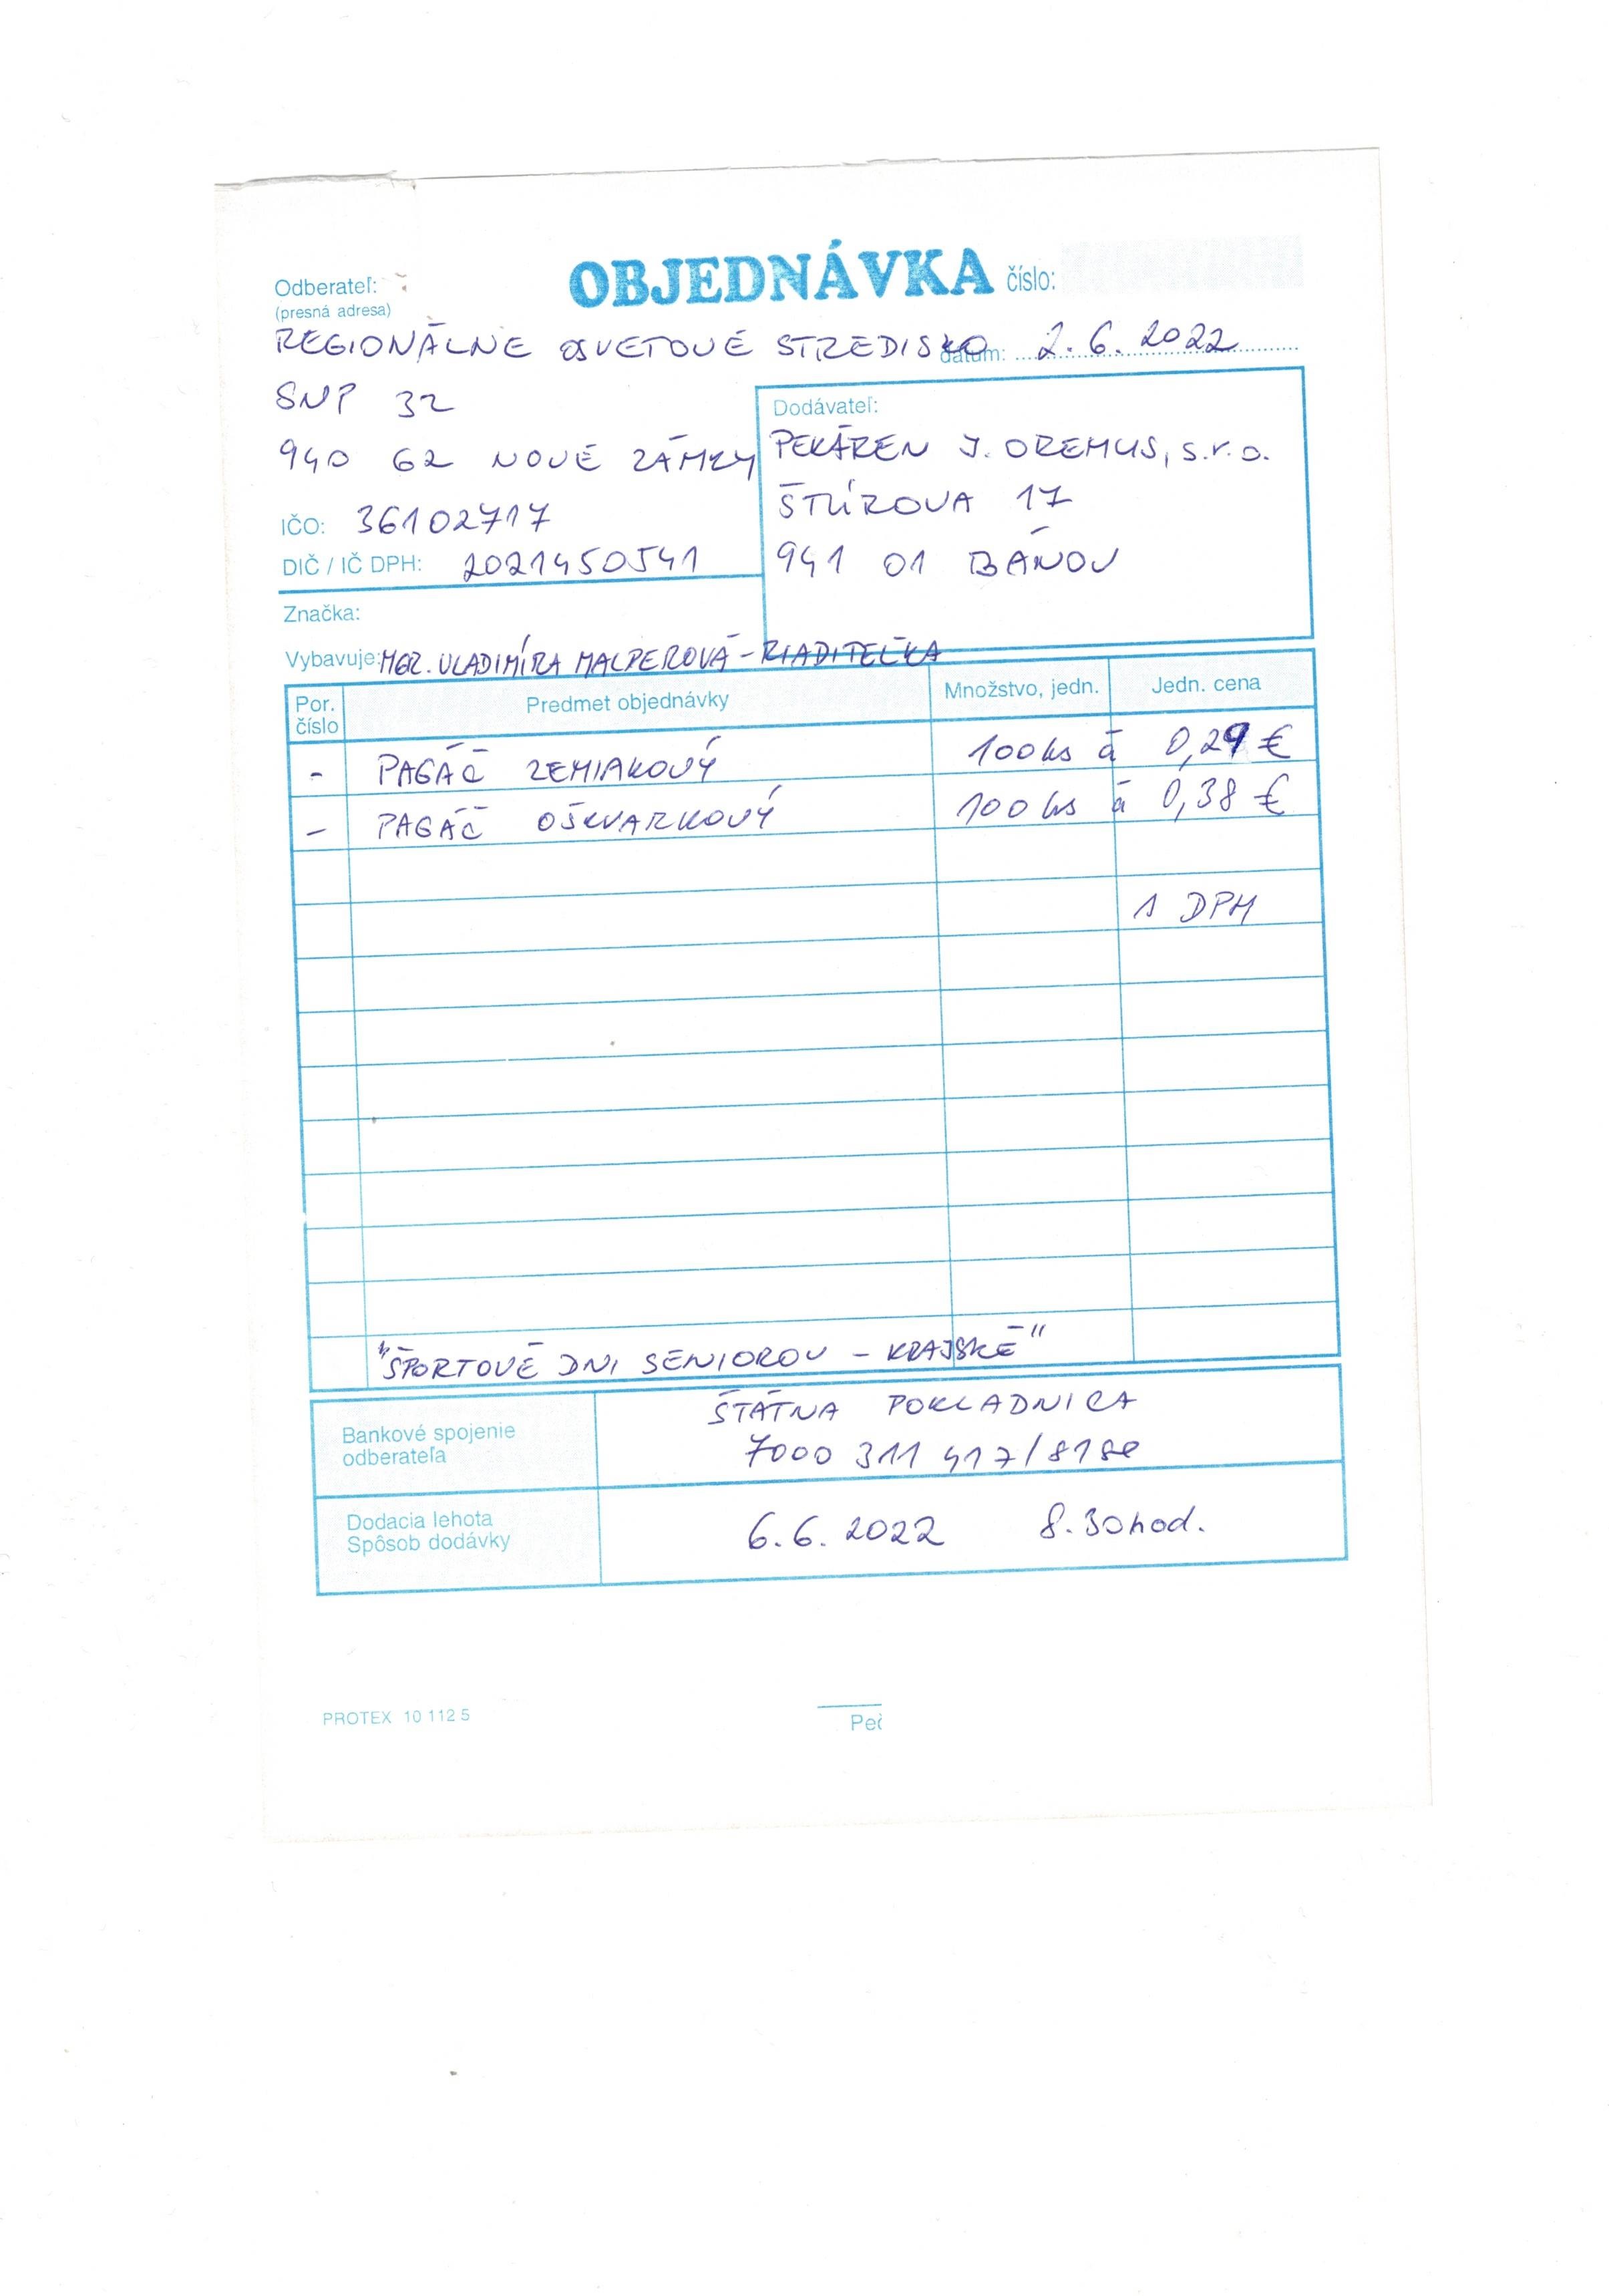 OBJEDNÁVKA číslo:
Odberateľ:
(presná adresa)
REGIONÁLNE OSVETOVÉ STREDISKO dátum: 2.6.2022
SNP 32
940 62 NOVÉ ZÁMKY
IČO: 36102717
DIČ / IČ DPH: 2021450541
Dodávateľ:
PEKÁREŇ J. OREMUS, s.r.o.
ŠTÚROVA 17
941 01 BÁNOV
Značka:
Vybavuje: MGR. VLADIMÍRA MALPEROVÁ - RIADITEĽKA
Por. číslo Predmet objednávky Množstvo, jedn. Jedn. cena
- PAGÁČ ZEMIAKOVÝ 100 ks á 0,29 €
- PAGÁČ OŠKVARKOVÝ 100 ks á 0,38 €
s DPH
"ŠPORTOVÉ DNI SENIOROV - KRAJSKÉ"
Bankové spojenie
odberateľa
ŠTÁTNA POKLADNICA
7000 311 417/8180
Dodacia lehota
Spôsob dodávky
6.6.2022 8.30 hod.
PROTEX 10 112 5
Peč